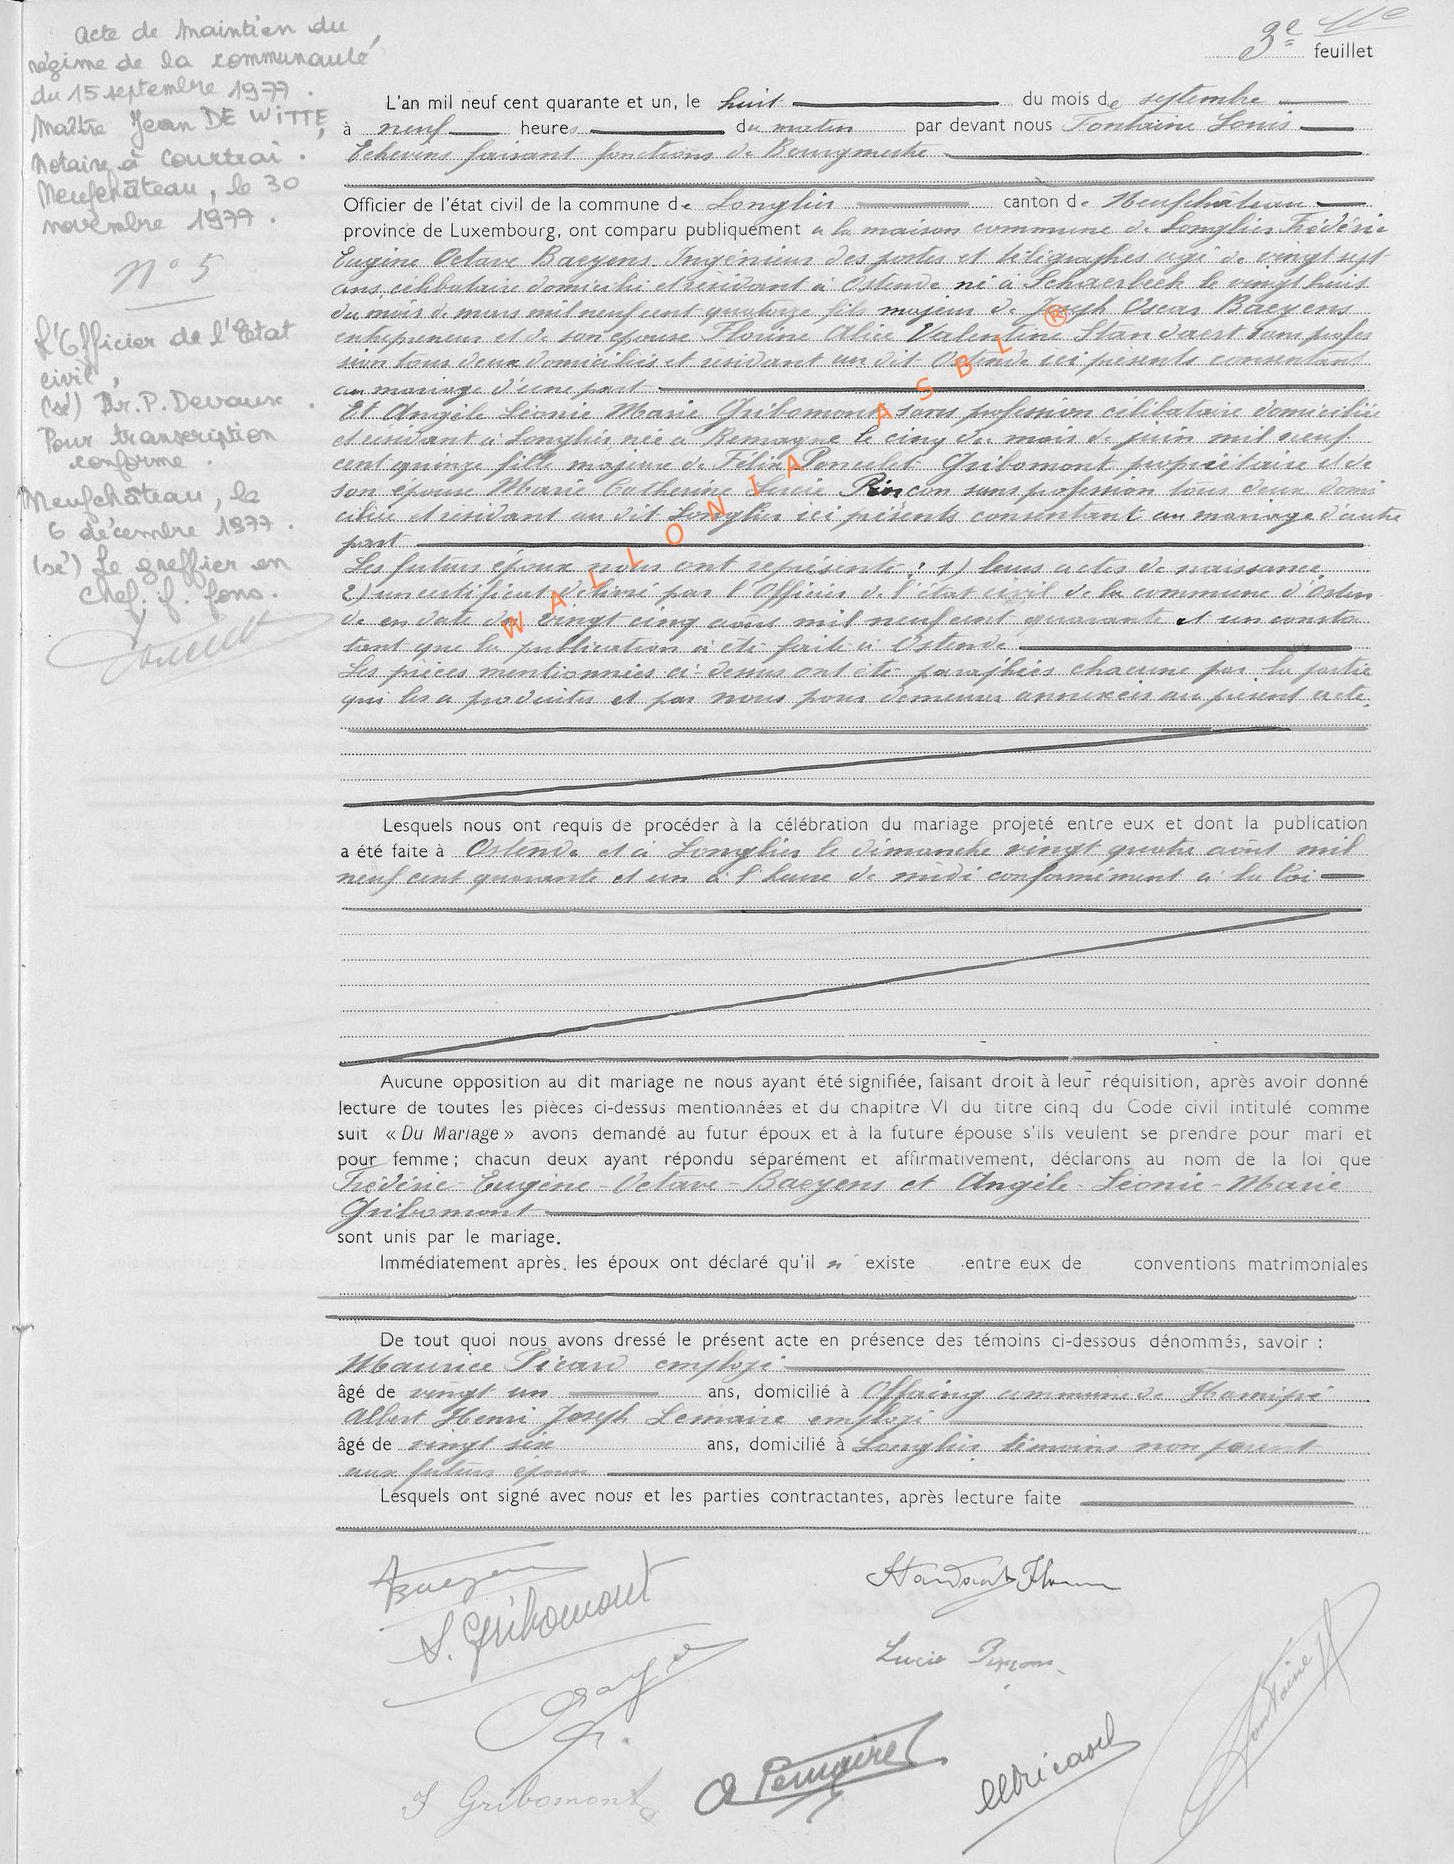 3e 11e
feuillet
Acte de Maintien du
régime de la communauté
du 15 septembre 1977.
Maître Jean DE WITTE,
Notaire à Courtrai.
Neufchâteau, le 30
novembre 1977.
N° 5
L'Officier de l'Etat
civil,
(sé) Dr. P. Devaux.
Pour transcription
conforme.
Neufchâteau, le
6 décembre 1977.
(sé) Le greffier en
chef. f. fons.
L'an mil neuf cent quarante et un, le huit du mois de septembre
à neuf heures du matin par devant nous Fontaine Louis
Echevins faisant fonctions de Bourgmestre
Officier de l'état civil de la commune de Longlier canton de Neufchâteau
province de Luxembourg, ont comparu publiquement à la maison commune de Longlier Frédéric
Eugène Octave Baeyens Ingénieur des postes et télégraphes agé de vingt sept
ans, célibataire domicilié et résidant à Ostende né à Schaerbeek le vingt huit
du mois de mars mil neuf cent quatorze fils majeur de Joseph Oscar Baeyens
entrepreneur et de son épouse Florine Alice Valentine Standaert sans profes
sion tous deux domiciliés et résidant au dit Ostende ici présents consentant
au mariage d'une part
Et Angèle Léonie Marie Gribomont sans profession célibataire domiciliée
et résidant à Longlier née à Remagne le cinq du mois de juin mil neuf
cent quinze fille majeure de Félix Poncelet Gribomont propriétaire et de
son épouse Marie Catherine Lucie Pinçon sans profession tous deux domi
ciliés et résidant au dit Longlier ici présents consentant au mariage d'autre
part
Les futurs époux nous ont représenté : 1) leurs actes de naissance
2) un certificat délivré par l'Officier de l'état civil de la commune d'Osten
de en date du vingt cinq août mil neuf cent quarante et un consta
tant que la publication a été faite à Ostende
Les pièces mentionnées ci-dessus ont été paraphées chacune par la partie
qui les a produites et par nous pour demeurer annexées au présent acte.
Lesquels nous ont requis de procéder à la célébration du mariage projeté entre eux et dont la publication
a été faite à Ostende et à Longlier le dimanche vingt quatre août mil
neuf cent quarante et un à l'heure de midi conformément à la loi
Aucune opposition au dit mariage ne nous ayant été signifiée, faisant droit à leur réquisition, après avoir donné
lecture de toutes les pièces ci-dessus mentionnées et du chapitre VI du titre cinq du Code civil intitulé comme
suit « Du Mariage » avons demandé au futur époux et à la future épouse s'ils veulent se prendre pour mari et
pour femme ; chacun deux ayant répondu séparément et affirmativement, déclarons au nom de la loi que
Frédéric-Eugène-Octave-Baeyens et Angèle-Léonie-Marie
Gribomont
sont unis par le mariage.
Immédiatement après, les époux ont déclaré qu'il n' existe entre eux de conventions matrimoniales
De tout quoi nous avons dressé le présent acte en présence des témoins ci-dessous dénommés, savoir :
Maurice Picard employé
âgé de vingt un ans, domicilié à Offaing commune de Hamipré
Albert Henri Joseph Lemaire employé
âgé de vingt six ans, domicilié à Longlier témoins non parent
aux futurs époux
Lesquels ont signé avec nous et les parties contractantes, après lecture faite
Baeyens
Standaert Florine
A. Gribomont
Lucie Pinçon
F Gribomont
A Lemaire
M Picard
Fontaine
WALLONIA ASBL ®